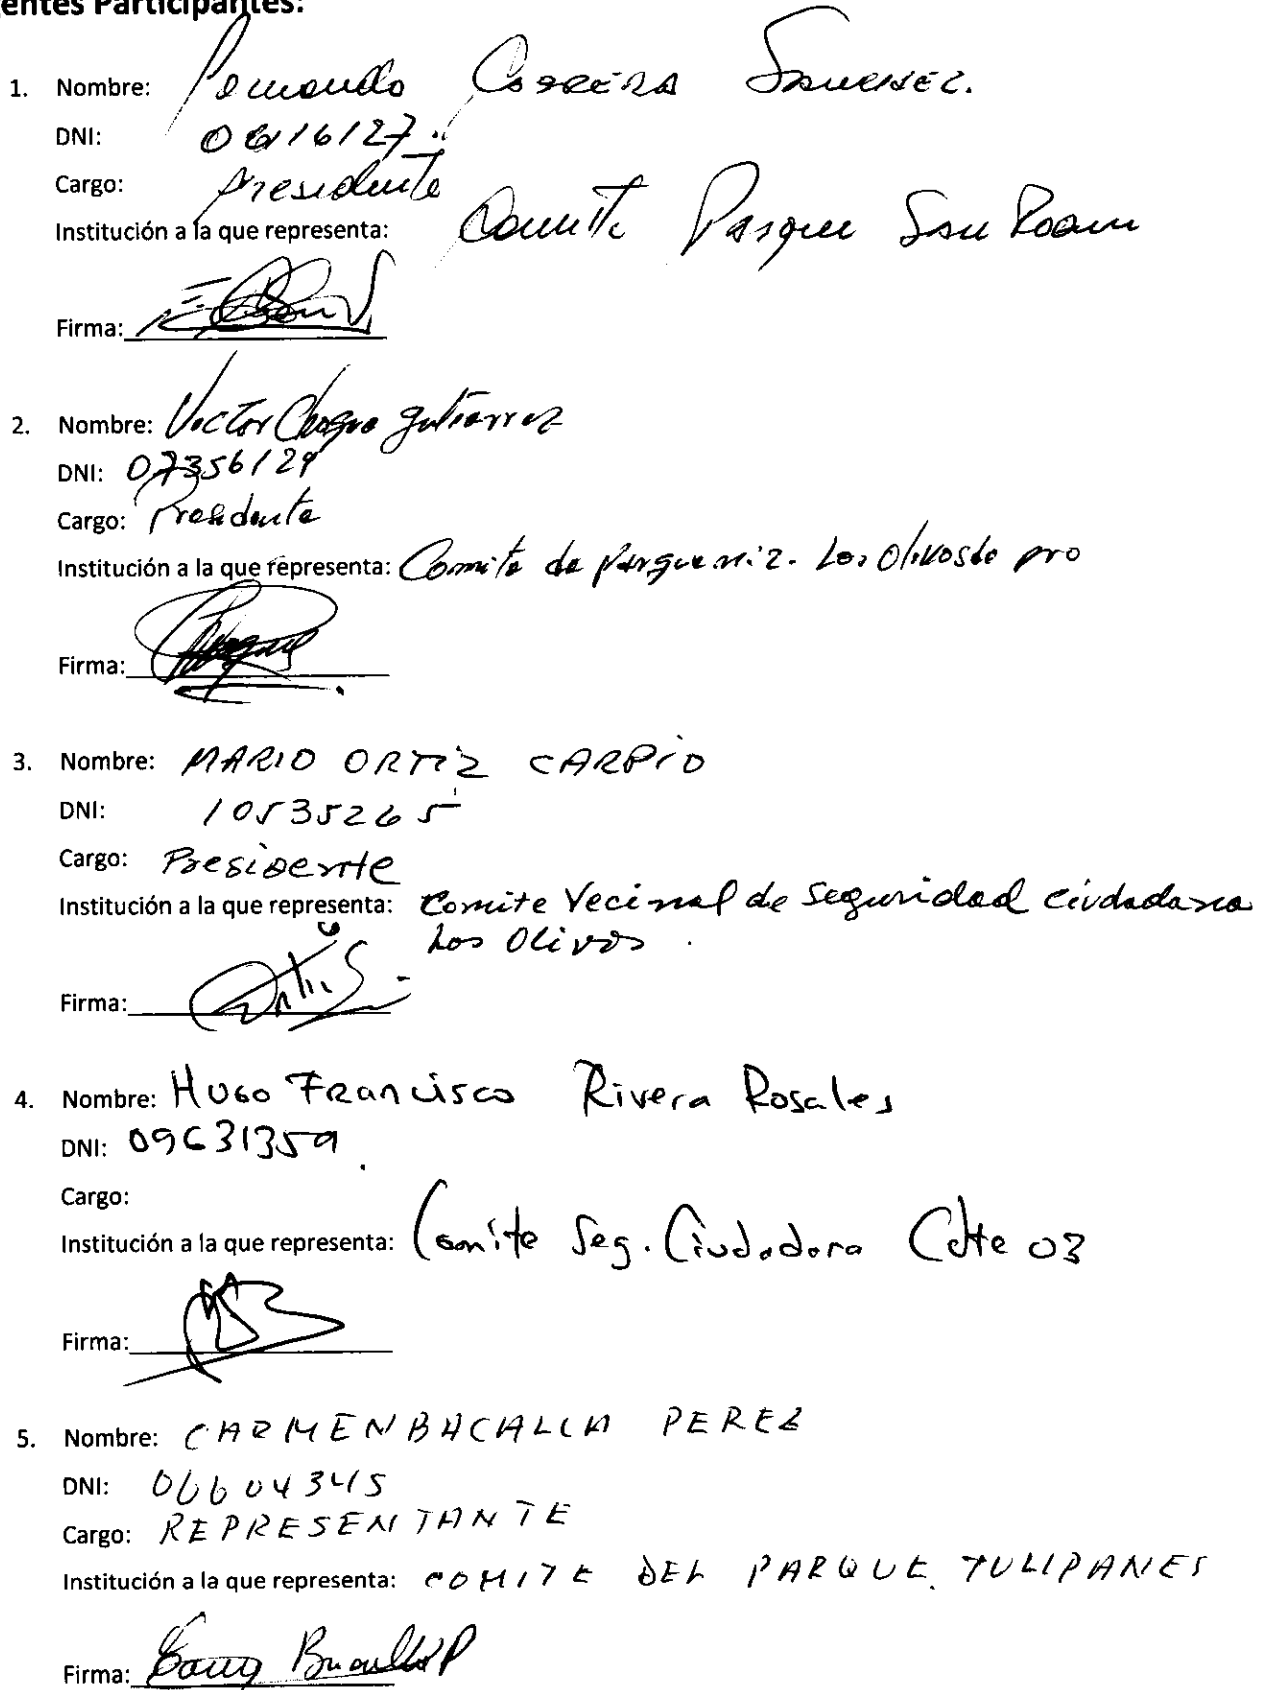 entes Participantes:
1. Nombre: Fernando Correra Sanchez.
DNI: 06616127
Cargo: presidente
Institución a la que representa: Comite Parque San Roam
Firma:
2. Nombre: Victor Choque gutierrez
DNI: 07356129
Cargo: Presidente
Institución a la que representa: Comite de parque mz 2. Los Olivos de pro
Firma:
3. Nombre: MARIO ORTIZ CARPIO
DNI: 10535265
Cargo: Presidente
Institución a la que representa: Comite Vecinal de Seguridad ciudadana
Los Olivos.
Firma:
4. Nombre: HUGO FRancisco Rivera Rosales
DNI: 09631359
Cargo:
Institución a la que representa: Comite Seg. Ciudadana 03
Firma:
5. Nombre: CARMEN BACALLA PEREZ
DNI: 06604345
Cargo: REPRESENTANTE
Institución a la que representa: COMITE DEL PARQUE TULIPANES
Firma: